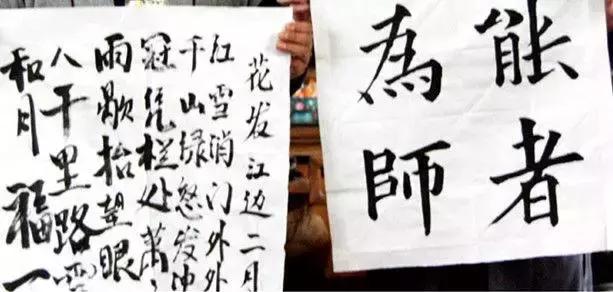 花发江边二月
红雪消门外外
千山绿怒发冲
冠凭栏处萧々
雨歇抬望眼
八千里路雲
和月福一
能者
為師